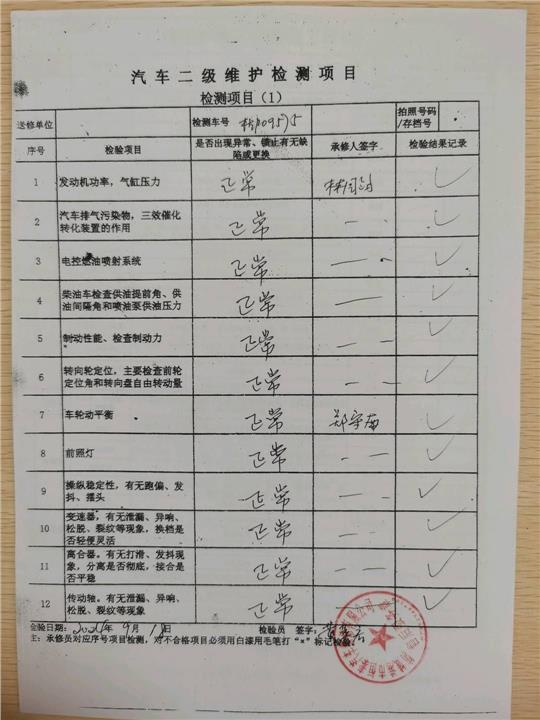 汽车二级维护检测项目
检测项目（1）
送修单位 检测车号 拍照号码/存档号
序号 检验项目 是否出现异常、锁止有无缺陷或更换 承修人签字 检验结果记录
1 发动机功率，气缸压力 正常 ✓
2 汽车排气污染物，三效催化转化装置的作用 正常 —— ✓
3 电控燃油喷射系统 正常 —— ✓
4 柴油车检查供油提前角、供油间隔角和喷油泵供油压力 正常 —— ✓
5 制动性能、检查制动力 正常 —— ✓
6 转向轮定位，主要检查前轮定位角和转向盘自由转动量 正常 —— ✓
7 车轮动平衡 正常 ✓
8 前照灯 正常 —— ✓
9 操纵稳定性，有无跑偏、发抖、摆头 正常 —— ✓
10 变速器。有无泄漏、异响、松脱、裂纹等现象，换档是否轻便灵活 正常 —— ✓
11 离合器。有无打滑、发抖现象，分离是否彻底，接合是否平稳 正常 —— ✓
12 传动轴。有无泄漏、异响、松脱、裂纹等现象 正常 —— ✓
检验日期： 年 9月 日 检验员 签字：
主：承修员对应序号项目检测，对不合格项目必须用白漆用毛笔打“×”标记检验。